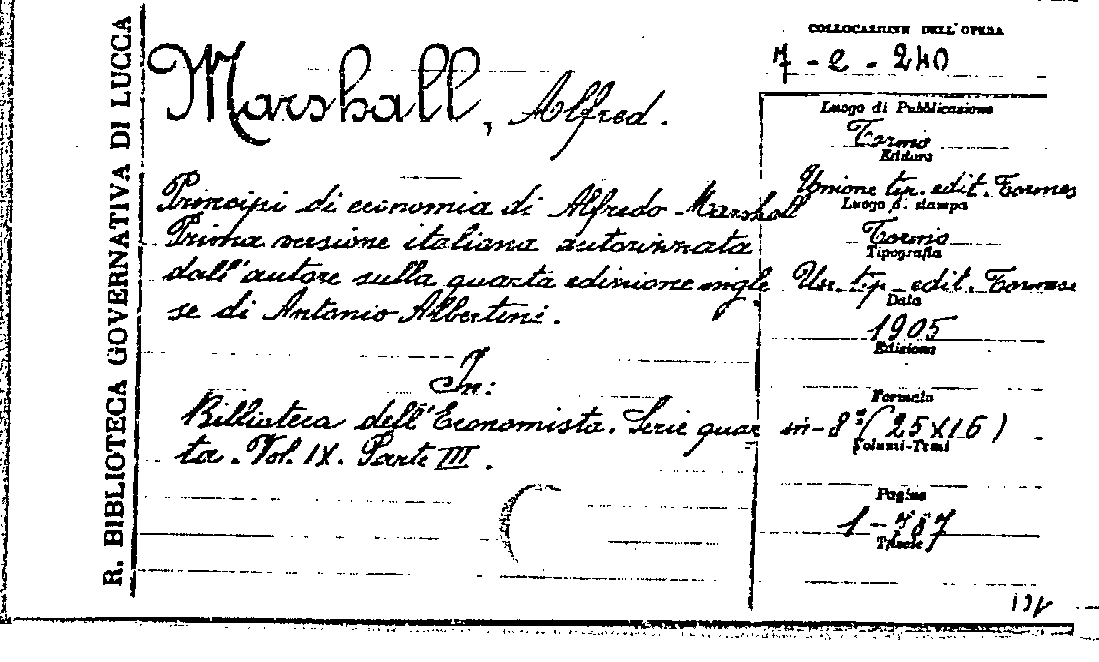 R. BIBLIOTECA GOVERNATIVA DI LUCCA
COLLOCAZIONE DELL'OPERA
7-e-240
Marshall, Alfred.
Principi di economia di Alfredo Marshall
Prima versione italiana autorizzata
dall'autore sulla quarta edizione ingle
se di Antonio Albertini.
In:
Biblioteca dell'Economista. Serie quar
ta. Vol. IX. Parte III.
Luogo di Pubblicazione
Torino
Editore
Unione tip. edit. Torinese
Luogo di stampa
Torino
Tipografia
Un. tip. edit. Torinese
Data
1905
Edizione
Formato
in-8° (25x16)
Volumi-Tomi
Pagine
1-787